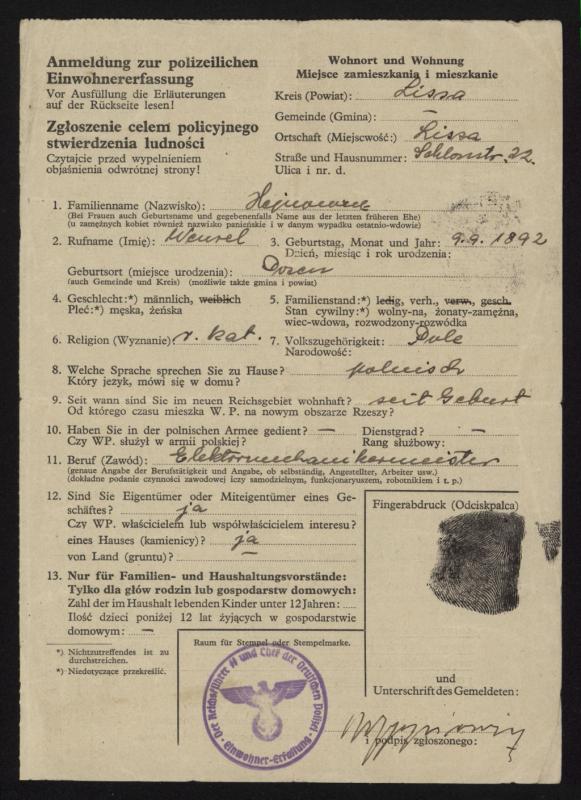 Anmeldung zur polizeilichen
Einwohnererfassung
Vor Ausfüllung die Erläuterungen
auf der Rückseite lesen!
Zgłoszenie celem policyjnego
stwierdzenia ludności
Czytajcie przed wypełnieniem
objaśnienia odwrótnej strony!
Wohnort und Wohnung
Miejsce zamieszkania i mieszkanie
Kreis (Powiat): Lissa
Gemeinde (Gmina): —
Ortschaft (Miejscwość:) Lissa
Straße und Hausnummer: Schlossstr. 22.
Ulica i nr. d.
1. Familienname (Nazwisko):
(Bei Frauen auch Geburtsname und gegebenenfalls Name aus der letzten früheren Ehe)
(u zamężnych kobiet również nazwisko panieńskie i w danym wypadku ostatnio-wdowie)
2. Rufname (Imię): Wenzel 3. Geburtstag, Monat und Jahr: 9.9.1892
Dzień, miesiąc i rok urodzenia:
Geburtsort (miejsce urodzenia): Posen
(auch Gemeinde und Kreis) (możliwie także gmina i powiat)
4. Geschlecht:*) männlich, weiblich 5. Familienstand:*) ledig, verh., verw., gesch.
Płeć:*) męska, żeńska Stan cywilny:*) wolny-na, żonaty-zamężna,
wiec-wdowa, rozwodzony-rozwódka
6. Religion (Wyznanie): r. kat. 7. Volkszugehörigkeit: Pole
Narodowość:
8. Welche Sprache sprechen Sie zu Hause? polnisch
Który język, mówi się w domu?
9. Seit wann sind Sie im neuen Reichsgebiet wohnhaft? seit Geburt
Od którego czasu mieszka W. P. na nowym obszarze Rzeszy?
10. Haben Sie in der polnischen Armee gedient? — Dienstgrad? —
Czy WP. służył w armii polskiej? Rang służbowy:
11. Beruf (Zawód): Elektormechanikermeister
(genaue Angabe der Berufstätigkeit und Angabe, ob selbständig, Angestellter, Arbeiter usw.)
(dokładne podanie czynności zawodowej iczy samodzielnym, funkcjonaryuszem, robotnikiem i t. p.)
12. Sind Sie Eigentümer oder Miteigentümer eines Ge-
schäftes? ja
Czy WP. właścicielem lub współwłaścicielem interesu?
eines Hauses (kamienicy)? ja
von Land (gruntu)? —
13. Nur für Familien- und Haushaltungsvorstände:
Tylko dla głów rodzin lub gospodarstw domowych:
Zahl der im Haushalt lebenden Kinder unter 12 Jahren:
Ilość dzieci poniżej 12 lat żyjących w gospodarstwie
domowym: —
*) Nichtzutreffendes ist zu
durchstreichen.
*) Niedotyczące przekreślić.
Raum für Stempel oder Stempelmarke.
Der Reichsführer SS und Chef der Deutschen Polizei
Einwohner-Erfassung
Fingerabdruck (Odciskpalca)
und
Unterschrift des Gemeldeten:
i podpis zgłoszonego: